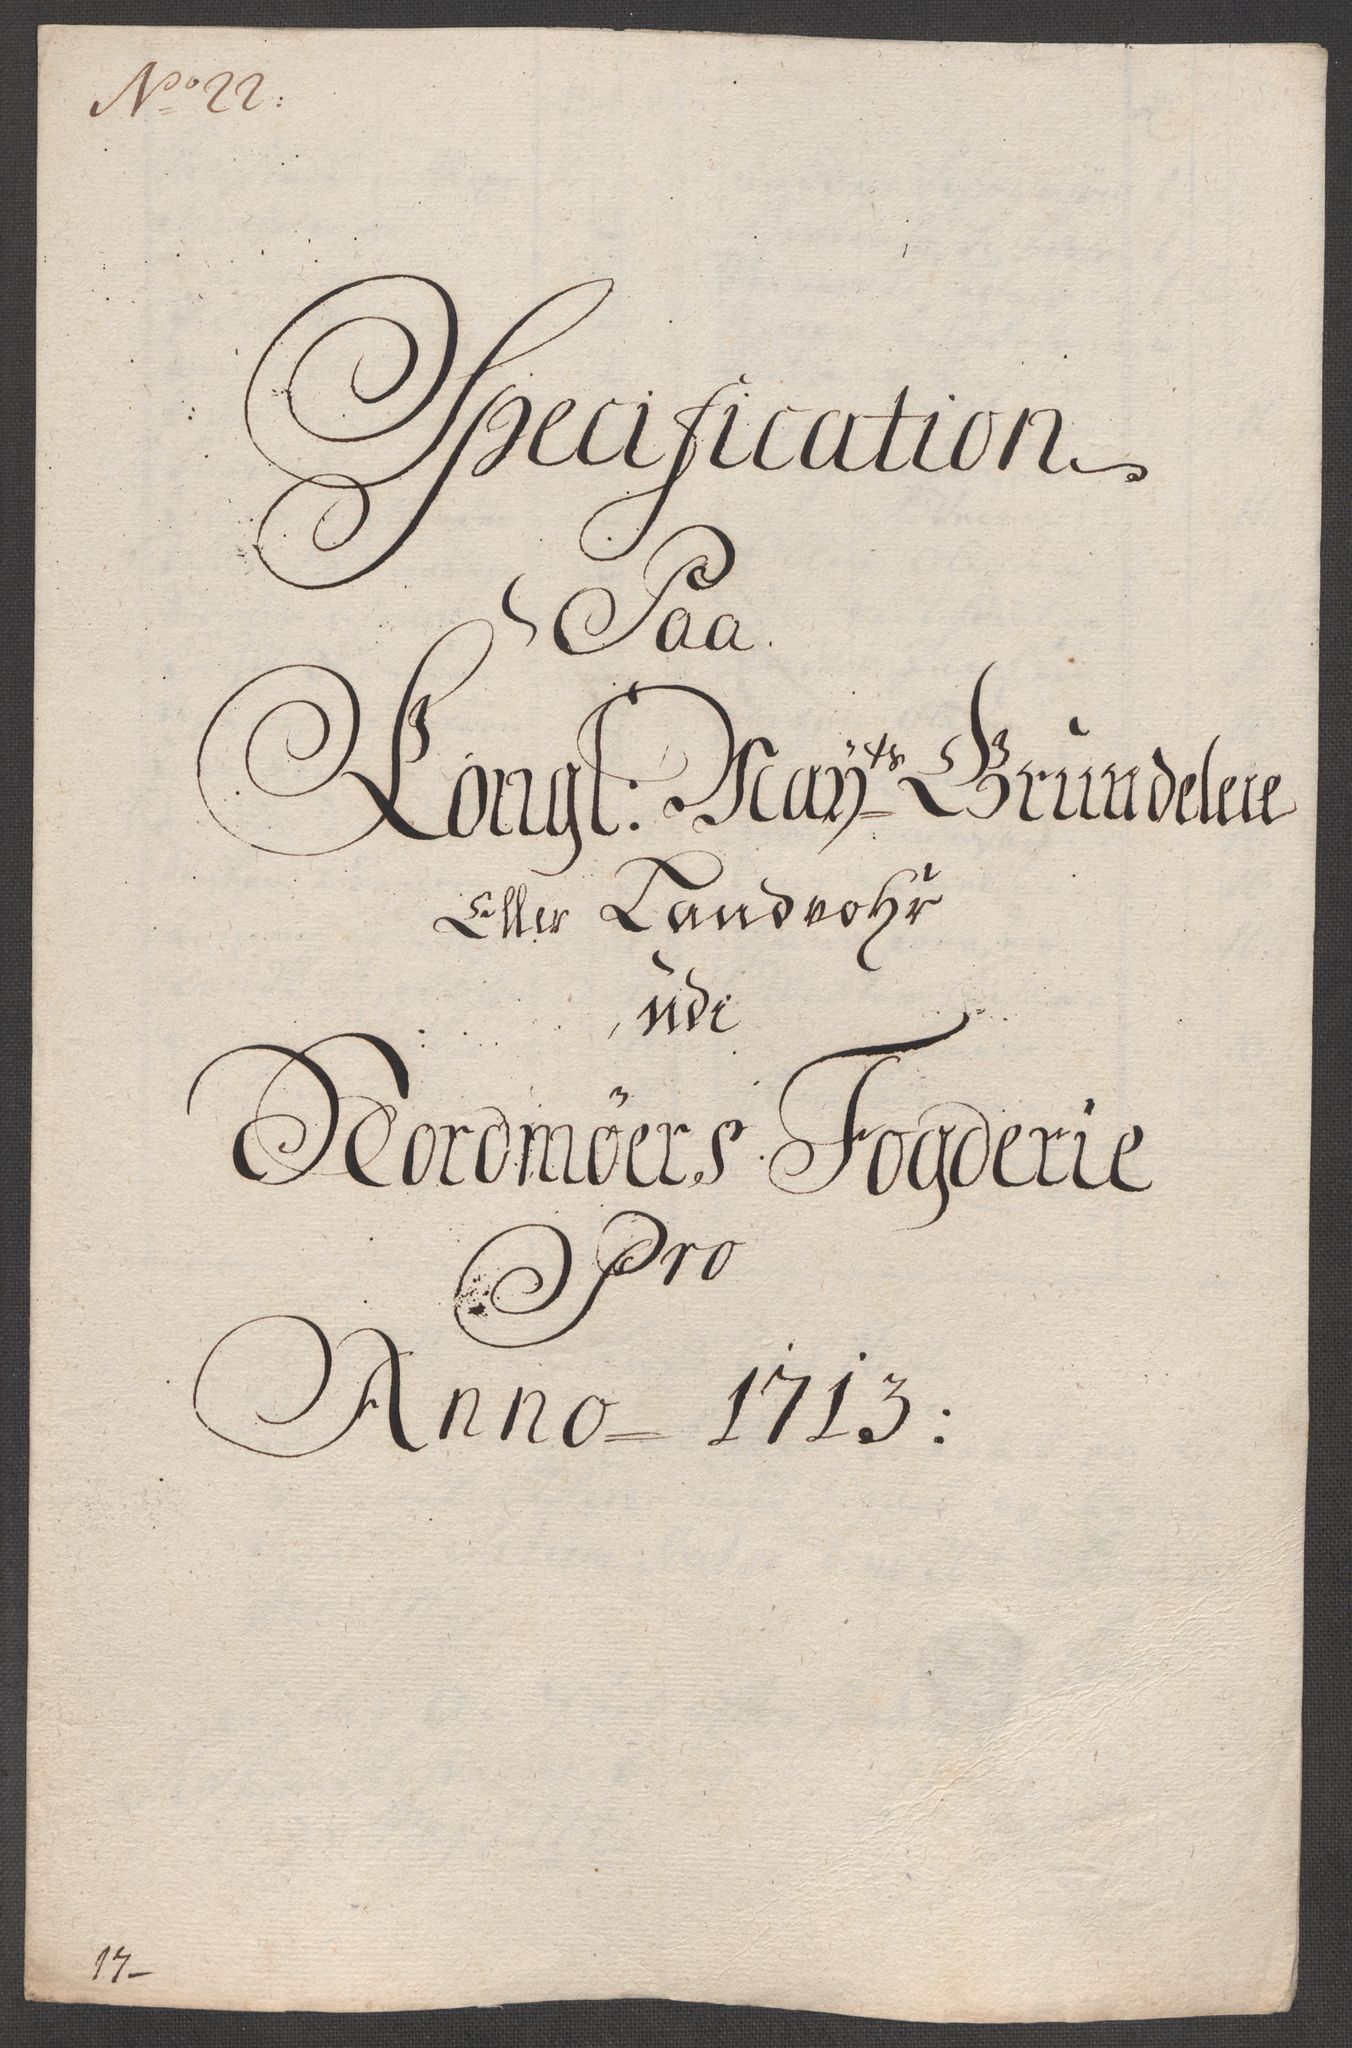 No 22:
Specification
Paa
Kongl: Mayts Grundeleie
Eller Landvohr
udi
Nordmöers Fogderie
Pro
Anno 1713:
17